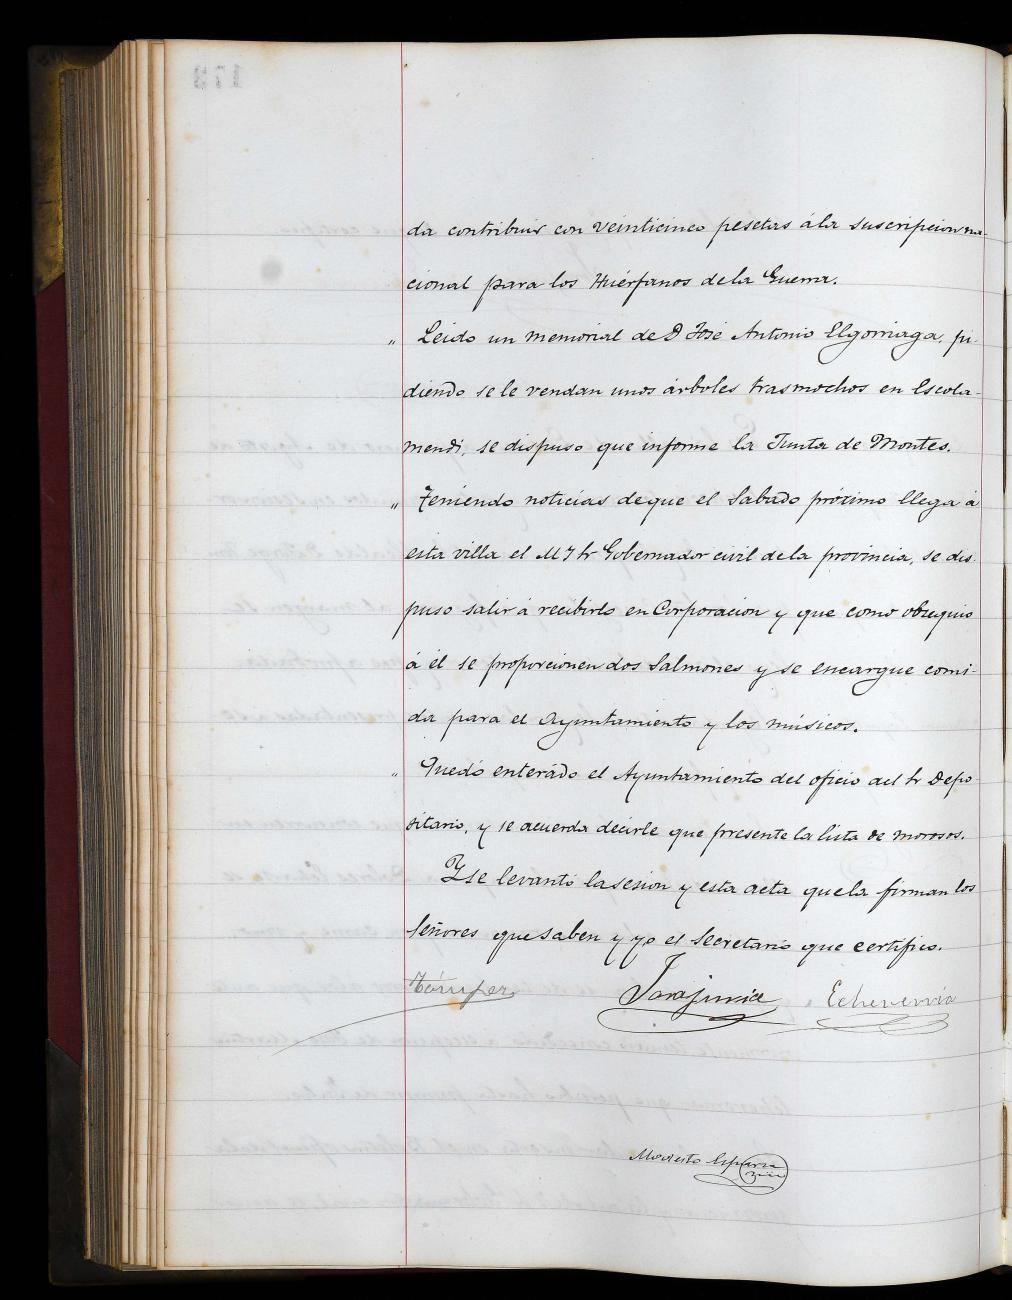 da contribuir con veinticinco pesetas á la suscripcion na-
cional para los Huérfanos de la Guerra.
" Leido un memorial de D José Antonio Elgorriaga, pi-
diendo se le vendan unos árboles trasmochos en Escola-
mendi, se dispuso que informe la Junta de Montes.
" Teniendo noticias de que el Sabado prócsimo llega á
esta villa el M Y Sr Gobernador civil de la provincia, se dis-
puso salir á recibirlo en Corporacion y que como obsequio
á él se proporcionen dos Salmones y se encargue comi-
da para el Ayuntamiento y los músicos.
" Quedó enterado el Ayuntamiento del oficio del Sr Depo-
sitario, y se acuerda decirle que presente la lista de morosos.
Y se levantó la sesion y esta acta que la firman los
Señores que saben y yo el Secretario que certifico.
Echeverria
Modesto